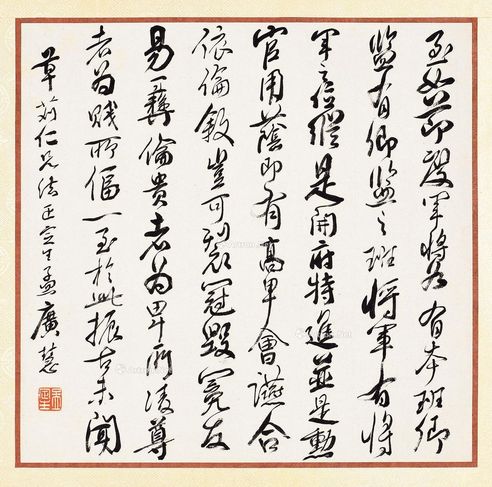 至如節度軍將各有本班卿
監有卿監之班將軍有將
軍之位縱是開府特進並是勳
官用蔭即有高卑會讌合
依倫敘豈可裂冠毀冕反
易彝倫貴者為卑所凌尊
者為賊所偪一至於此振古未聞
草仁兄法正定生孟廣慧